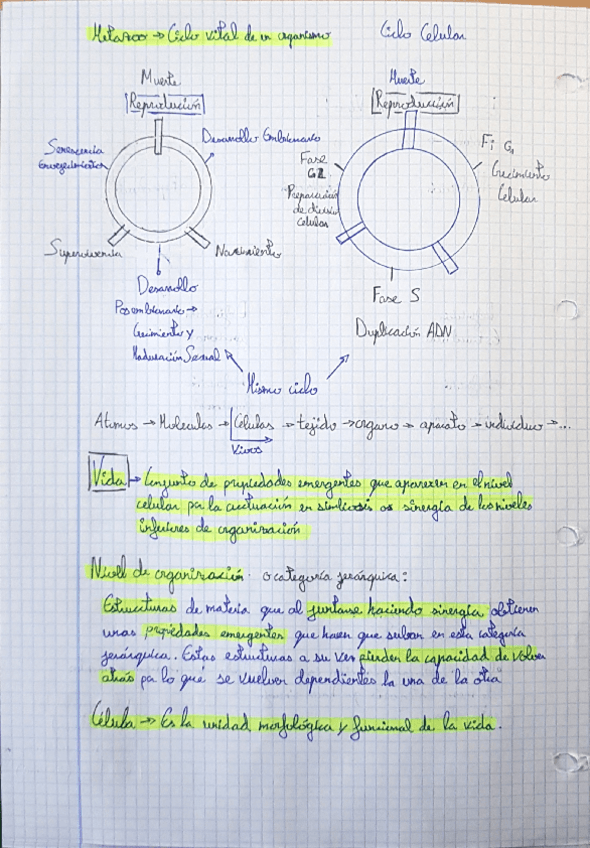 Metazoo → Ciclo vital de un organismo
Ciclo Celular
Muerte
Reproducción
Desarollo Embrionario
Nacimiento
Desarollo
Posembrionario →
Crecimiento y
Maduración Sexual
Supervivencia
Senescencia
Envegecimiento
Muerte
Reproducción
F: G1
Crecimiento
Celular
Fase S
Duplicación ADN
Fase
G2
Preparación
de división
Celular
Mismo ciclo
Atomos → Moleculas → Células → tejido → organo → aparato → individuo → ...
Vivos
Vida → Conjunto de propiedades emergentes que aparecen en el nivel
celular por la actuación en simbiosis o sinergia de los niveles
inferiores de organización
Nivel de organización o categoría jerárquica:
Estructuras de materia que al juntarse haciendo sinergia obtienen
unas propiedades emergentes que hacen que suban en esta categoría
jerárquica. Estas estructuras a su vez pierden la capacidad de volver
atrás por lo que se vuelven dependientes la una de la otra
Célula → Es la unidad morfológica y funcional de la vida.